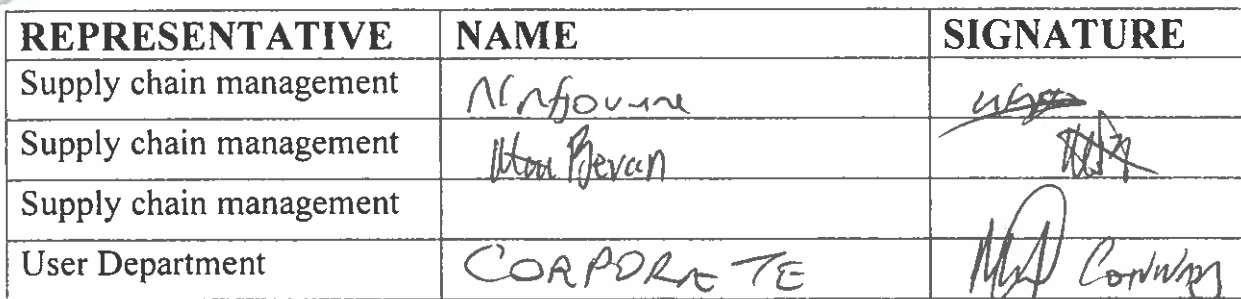 REPRESENTATIVE NAME SIGNATURE
Supply chain management
Supply chain management Bevan
Supply chain management
User Department CORPORATE Conway